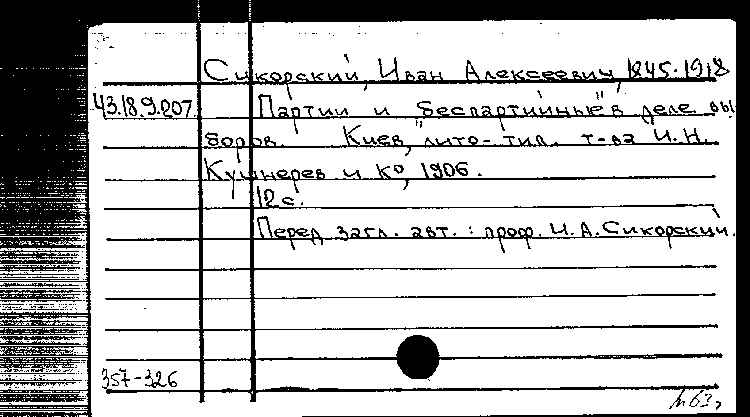 Сикорский, Иван Алексеевич, 1845-1918
43.18.9.207. Партии и „беспартийные" в деле вы
боров. Киев, лито-тип. т-ва И.Н.
Кушнерев и К°, 1906.
12 с.
Перед загл. авт.: проф. И.А.Сикорский.
357-326